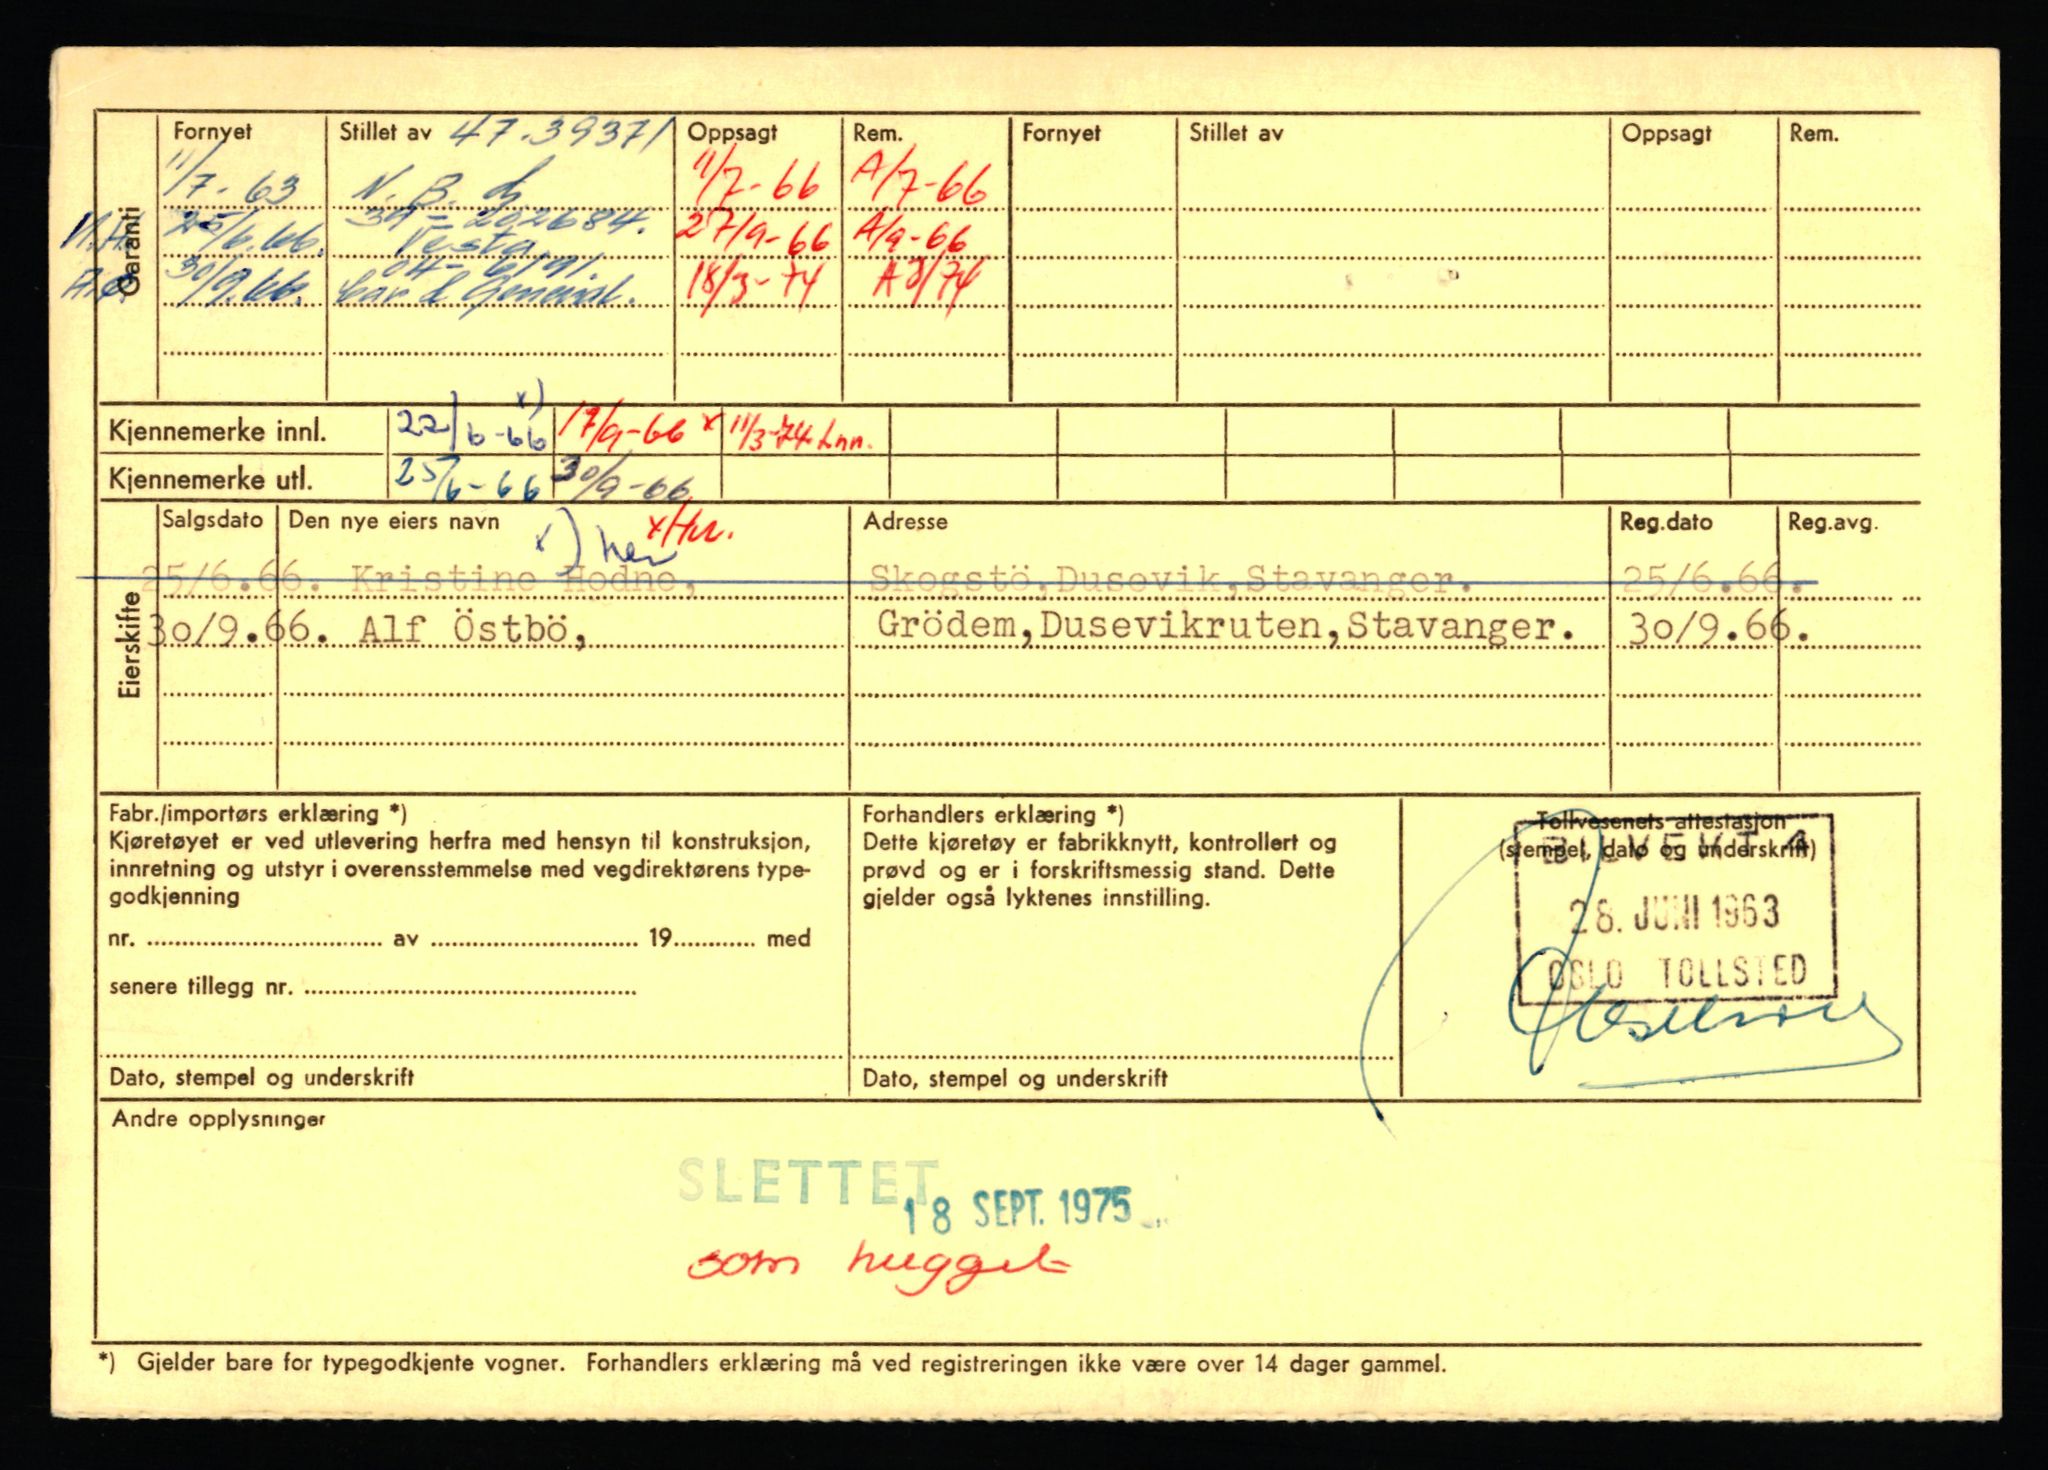 Garanti
Fornyet Stillet av 47.39371 Oppsagt Rem. Fornyet Stillet av Oppsagt Rem.
11/7-63 N.B. 11/7-66 A/7-66
25/6.66. 39-202684. Vesta 27/9-66 A/9-66
30/9.66. 04-6191. Car & General. 18/3-74 A3/74
Kjennemerke innl. 22/6-66 x) 17/9-66 x 11/3-74 Inn.
Kjennemerke utl. 25/6-66 30/9-66
Eierskifte
Salgsdato Den nye eiers navn x) her x/Hr. Adresse Reg.dato Reg.avg.
25/6.66. Kristine Hodne, Skogstö,Dusevik,Stavanger. 25/6.66.
30/9.66. Alf Östbö, Grödem,Dusevikruten,Stavanger. 30/9.66.
Fabr./importørs erklæring *)
Kjøretøyet er ved utlevering herfra med hensyn til konstruksjon,
innretning og utstyr i overensstemmelse med vegdirektørens type-
godkjenning
nr. ........ av ........ 19........ med
senere tillegg nr. ........
Dato, stempel og underskrift
Forhandlers erklæring *)
Dette kjøretøy er fabrikknytt, kontrollert og
prøvd og er i forskriftsmessig stand. Dette
gjelder også lyktenes innstilling.
Dato, stempel og underskrift
Tollvesenets attestasjon
(stempel, dato og underskrift)
BILVEKT
28. JUNI 1963
OSLO TOLLSTED
Andre opplysninger
SLETTET
18 SEPT. 1975
som hugget
*) Gjelder bare for typegodkjente vogner. Forhandlers erklæring må ved registreringen ikke være over 14 dager gammel.